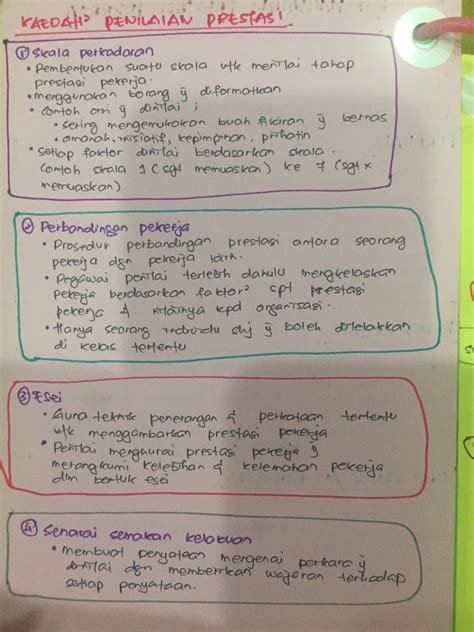 KAEDAH² PENILAIAN PRESTASI
① Skala perkadaran
• Pembentukan suatu skala utk menilai tahap
prestasi pekerja.
• menggunakan borang yg diformatkan
• Contoh ciri yg dinilai ;
• sering mengemukakan buah fikiran yg bernas
• amanah, inisiatif, kepimpinan, prihatin
• Setiap faktor dinilai berdasarkan skala.
Contoh skala 1 (sgt memuaskan) ke 7 (sgt x
memuaskan)
② Perbandingan pekerja
• Prosedur perbandingan prestasi antara seorang
pekerja dgn pekerja lain.
• Pegawai penilai terlebih dahulu mengkelaskan
pekerja berdasarkan faktor² spt prestasi
pekerja & nilainya kpd organisasi.
• Hanya seorang individu shj yg boleh diletakkan
di kelas tertentu
③ Esei
• Guna teknik penerangan & perkataan tertentu
utk menggambarkan prestasi pekerja
• Penilai menghurai prestasi pekerja yg
merangkumi kelebihan & kelemahan pekerja
dlm bentuk esei
④ Senarai semakan kelakuan
• membuat penyataan mengenai perkara yg
dinilai dgn memberikan wajaran terhadap
setiap penyataan.